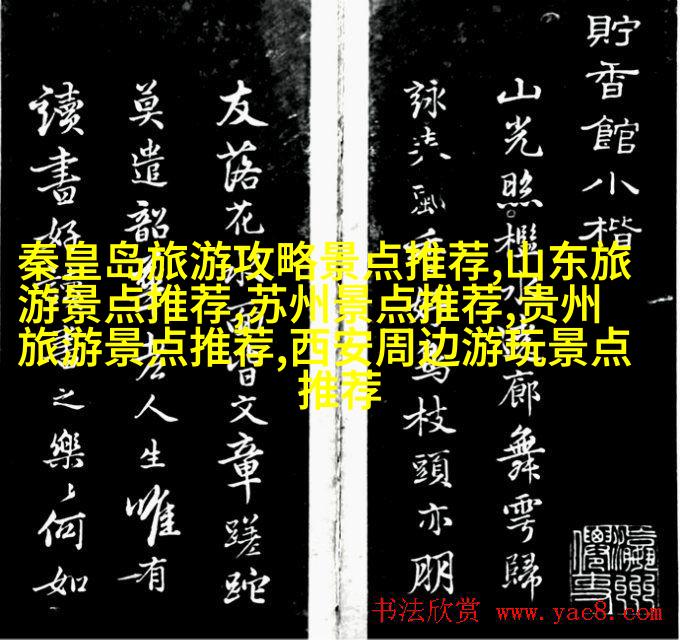 秦皇岛旅游攻略景点推荐,山东旅
游景点推荐,苏州景点推荐,贵州
旅游景点推荐,西安周边游玩景点
推荐
貯香館小楷
山光照檻水廊舞雩歸
詠春風好鳥枝頭亦朋
友落花水面皆文章蹉跎
莫遣韶老人生唯有
讀書好讀書之樂々何如
书法欣赏 www.yac8.com